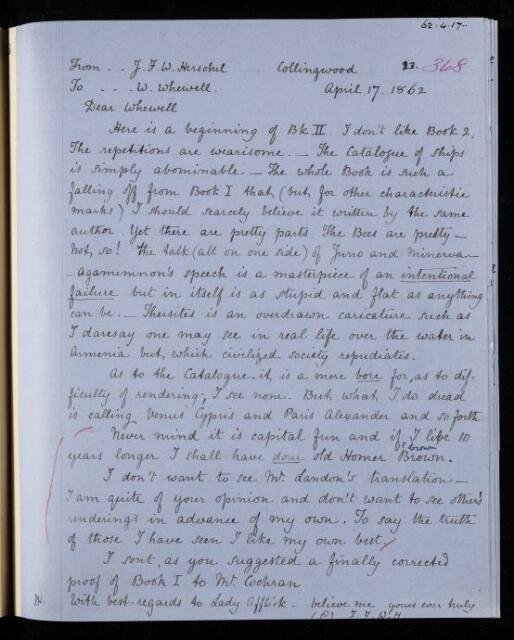 62.4.17.
From -- J. F. W. Herschel Collingwood 23. 368
To --- W. Whewell. April 17. 1862
Dear Whewell
Here is a beginning of Bk II. I don't like Book 2.
The repetitions are wearisome. — The Catalogue of Ships
is simply abominable — The whole Book is such a
falling off from Book I that, (but for other characteristic
marks) I should scarcely believe it written by the same
author. Yet there are pretty parts The Bees are pretty —
Not, so! the talk (all on one side) of Juno and Minerva —
- Agamemnon's speech is a masterpiece of an intentional
failure but in itself is as stupid and flat as anything
can be. — Thersites is an overdrawn caricature such as
I daresay one may see in real life over the water in
Armenia but which civilized society repudiates.
As to the Catalogue it is a mere bore for, as to dif-
ficulty of rendering, I see none. But what I do dread
is calling Venus Cypris and Paris Alexander and so forth
Never mind it is capital fun and if I live 10
years longer I shall have done old Homer Brown.
? brown
I don't want to see Mr. Landon's translation —
I am quite of your opinion and don't want to see other's
renderings in advance of my own. To say the truth
of those I have seen I like my own best.
I sent, as you suggested a finally corrected
proof of Book I to Mr. Cochran
With best regards to Lady Affleck — believe me yours ever truly
J. F. W. H.